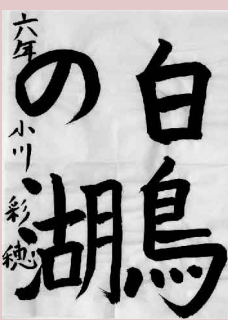 白鳥
の湖
六年 小川 彩穂